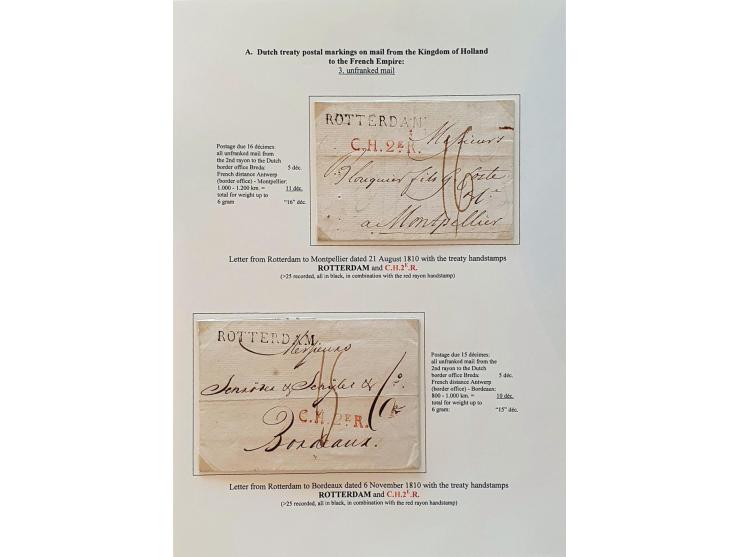 A. Dutch treaty postal markings on mail from the Kingdom of Holland
to the French Empire:
3. unfranked mail
Postage due 16 décimes:
all unfranked mail from
the 2nd rayon to the Dutch
border office Breda: 5 déc.
French distance Antwerp
(border office) - Montpellier:
1.000 - 1.200 km. = 11 déc.
total for weight up to
6 gram "16" déc.
ROTTERDAM
C.H.2E R.
Messieurs
fils &
a Montpellier
16
Letter from Rotterdam to Montpellier dated 21 August 1810 with the treaty handstamps
ROTTERDAM and C.H.2E.R.
(>25 recorded, all in black, in combination with the red rayon handstamp)
ROTTERDAM.
Messieurs
&
15
C.H.2E R.
Bordeaux.
Postage due 15 décimes:
all unfranked mail from the
2nd rayon to the Dutch
border office Breda: 5 déc.
French distance Antwerp
(border office) - Bordeaux:
800 - 1.000 km. = 10 déc.
total for weight up to
6 gram: "15" déc.
Letter from Rotterdam to Bordeaux dated 6 November 1810 with the treaty handstamps
ROTTERDAM and C.H.2E.R.
(>25 recorded, all in black, in combination with the red rayon handstamp)